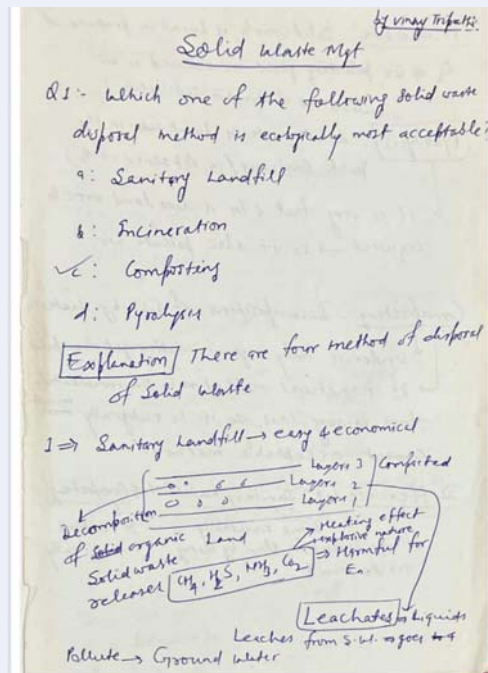 by Vinay Tripathi
Solid Waste Mgt
Q1:- Which one of the following solid waste
disposal method is ecologically most acceptable?
a: Sanitary Landfill
b: Incineration
✓c: Composting
d: Pyrolysis
Explanation There are four method of disposal
of Solid waste
1⇒ Sanitary Landfill → easy & economical
Layers 3 Compacted
Layers 2
Layers 1
Decomposition
of solid organic Land
Solid waste
releases CH4, H2S, NH3, CO2
→ Heating effect
→ explosive nature
⇒ Harmful for
En
Leachates → Liquids
Leaches from S.W. → goes
Pollute → Ground Water